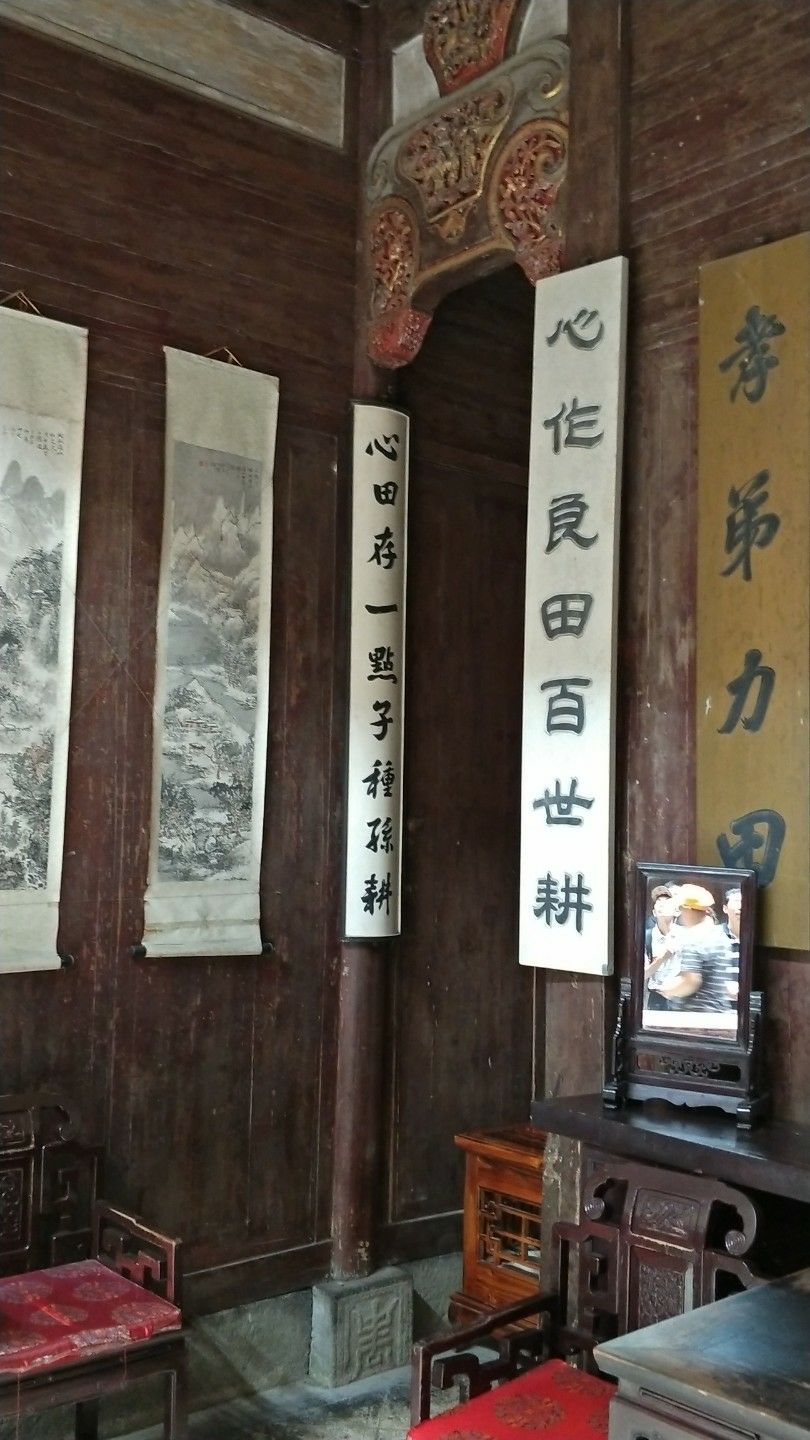 孝弟力田
心作良田百世耕
心田存一點子種孫耕